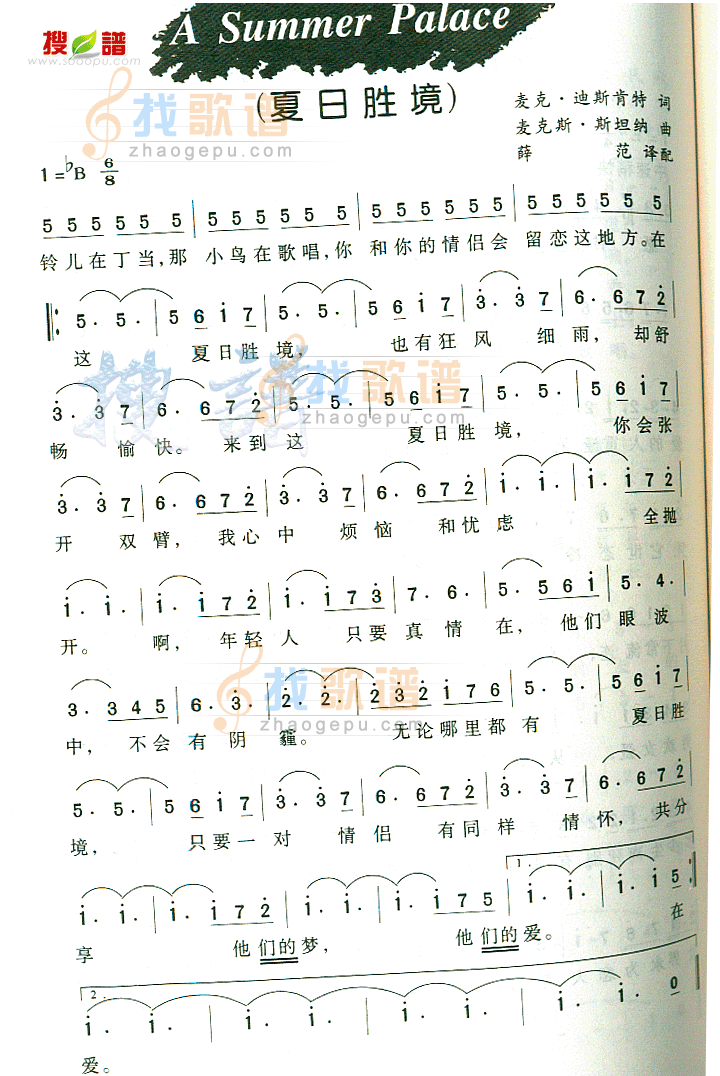 A Summer Palace
搜谱
www.sooopu.com
(夏日胜境)
找歌谱
zhaogepu.com
麦克·迪斯肯特 词
麦克斯·斯坦纳 曲
薛 范 译配
1=♭B 6/8
5 5 5 5 5 5 | 5 5 5 5 5 5 | 5 5 5 5 5 5 | 5 5 5 5 5 5
铃儿在丁当,那 小鸟在歌唱,你 和你的情侣会 留恋这地方。在
5. 5. | 5 6 i 7 | 5. 5. | 5 6 i 7 | 3. 3 7 | 6. 6 7 2
这 夏日胜境, 也有狂风 细雨, 却舒
3. 3 7 | 6. 6 7 2 | 5. 5. | 5 6 i 7 | 5. 5. | 5 6 i 7
找歌谱
zhaogepu.com
畅 愉快。来到这 夏日胜境, 你会张
3. 3 7 | 6. 6 7 2 | 3. 3 7 | 6. 6 7 2 | i. i. | i. i 7 2
开 双臂, 我心中 烦恼 和忧虑 全抛
i. i. | i. i 7 2 | i. i 7 3 | 7. 6. | 5. 5 6 i | 5. 4.
开。 啊, 年轻人 只要真情在, 他们眼波
3. 3 4 5 | 6. 3. | 2. 2. | 2 3 2 i 7 6 | 5. 5. | 5 6 i 7
找歌谱
zhaogepu.com
中, 不会有阴霾。 无论哪里都有 夏日胜
5. 5. | 5 6 i 7 | 3. 3 7 | 6. 6 7 2 | 3. 3 7 | 6. 6 7 2
境, 只要一对 情侣 有同样 情怀, 共分
i. i. | i. i 7 2 | i. i. | i. i 7 5 | 1. i. i. | i. i 5
享 他们的梦, 他们的爱。 在
2. i. i. | i. i. | i. i. | i. i 0
爱。